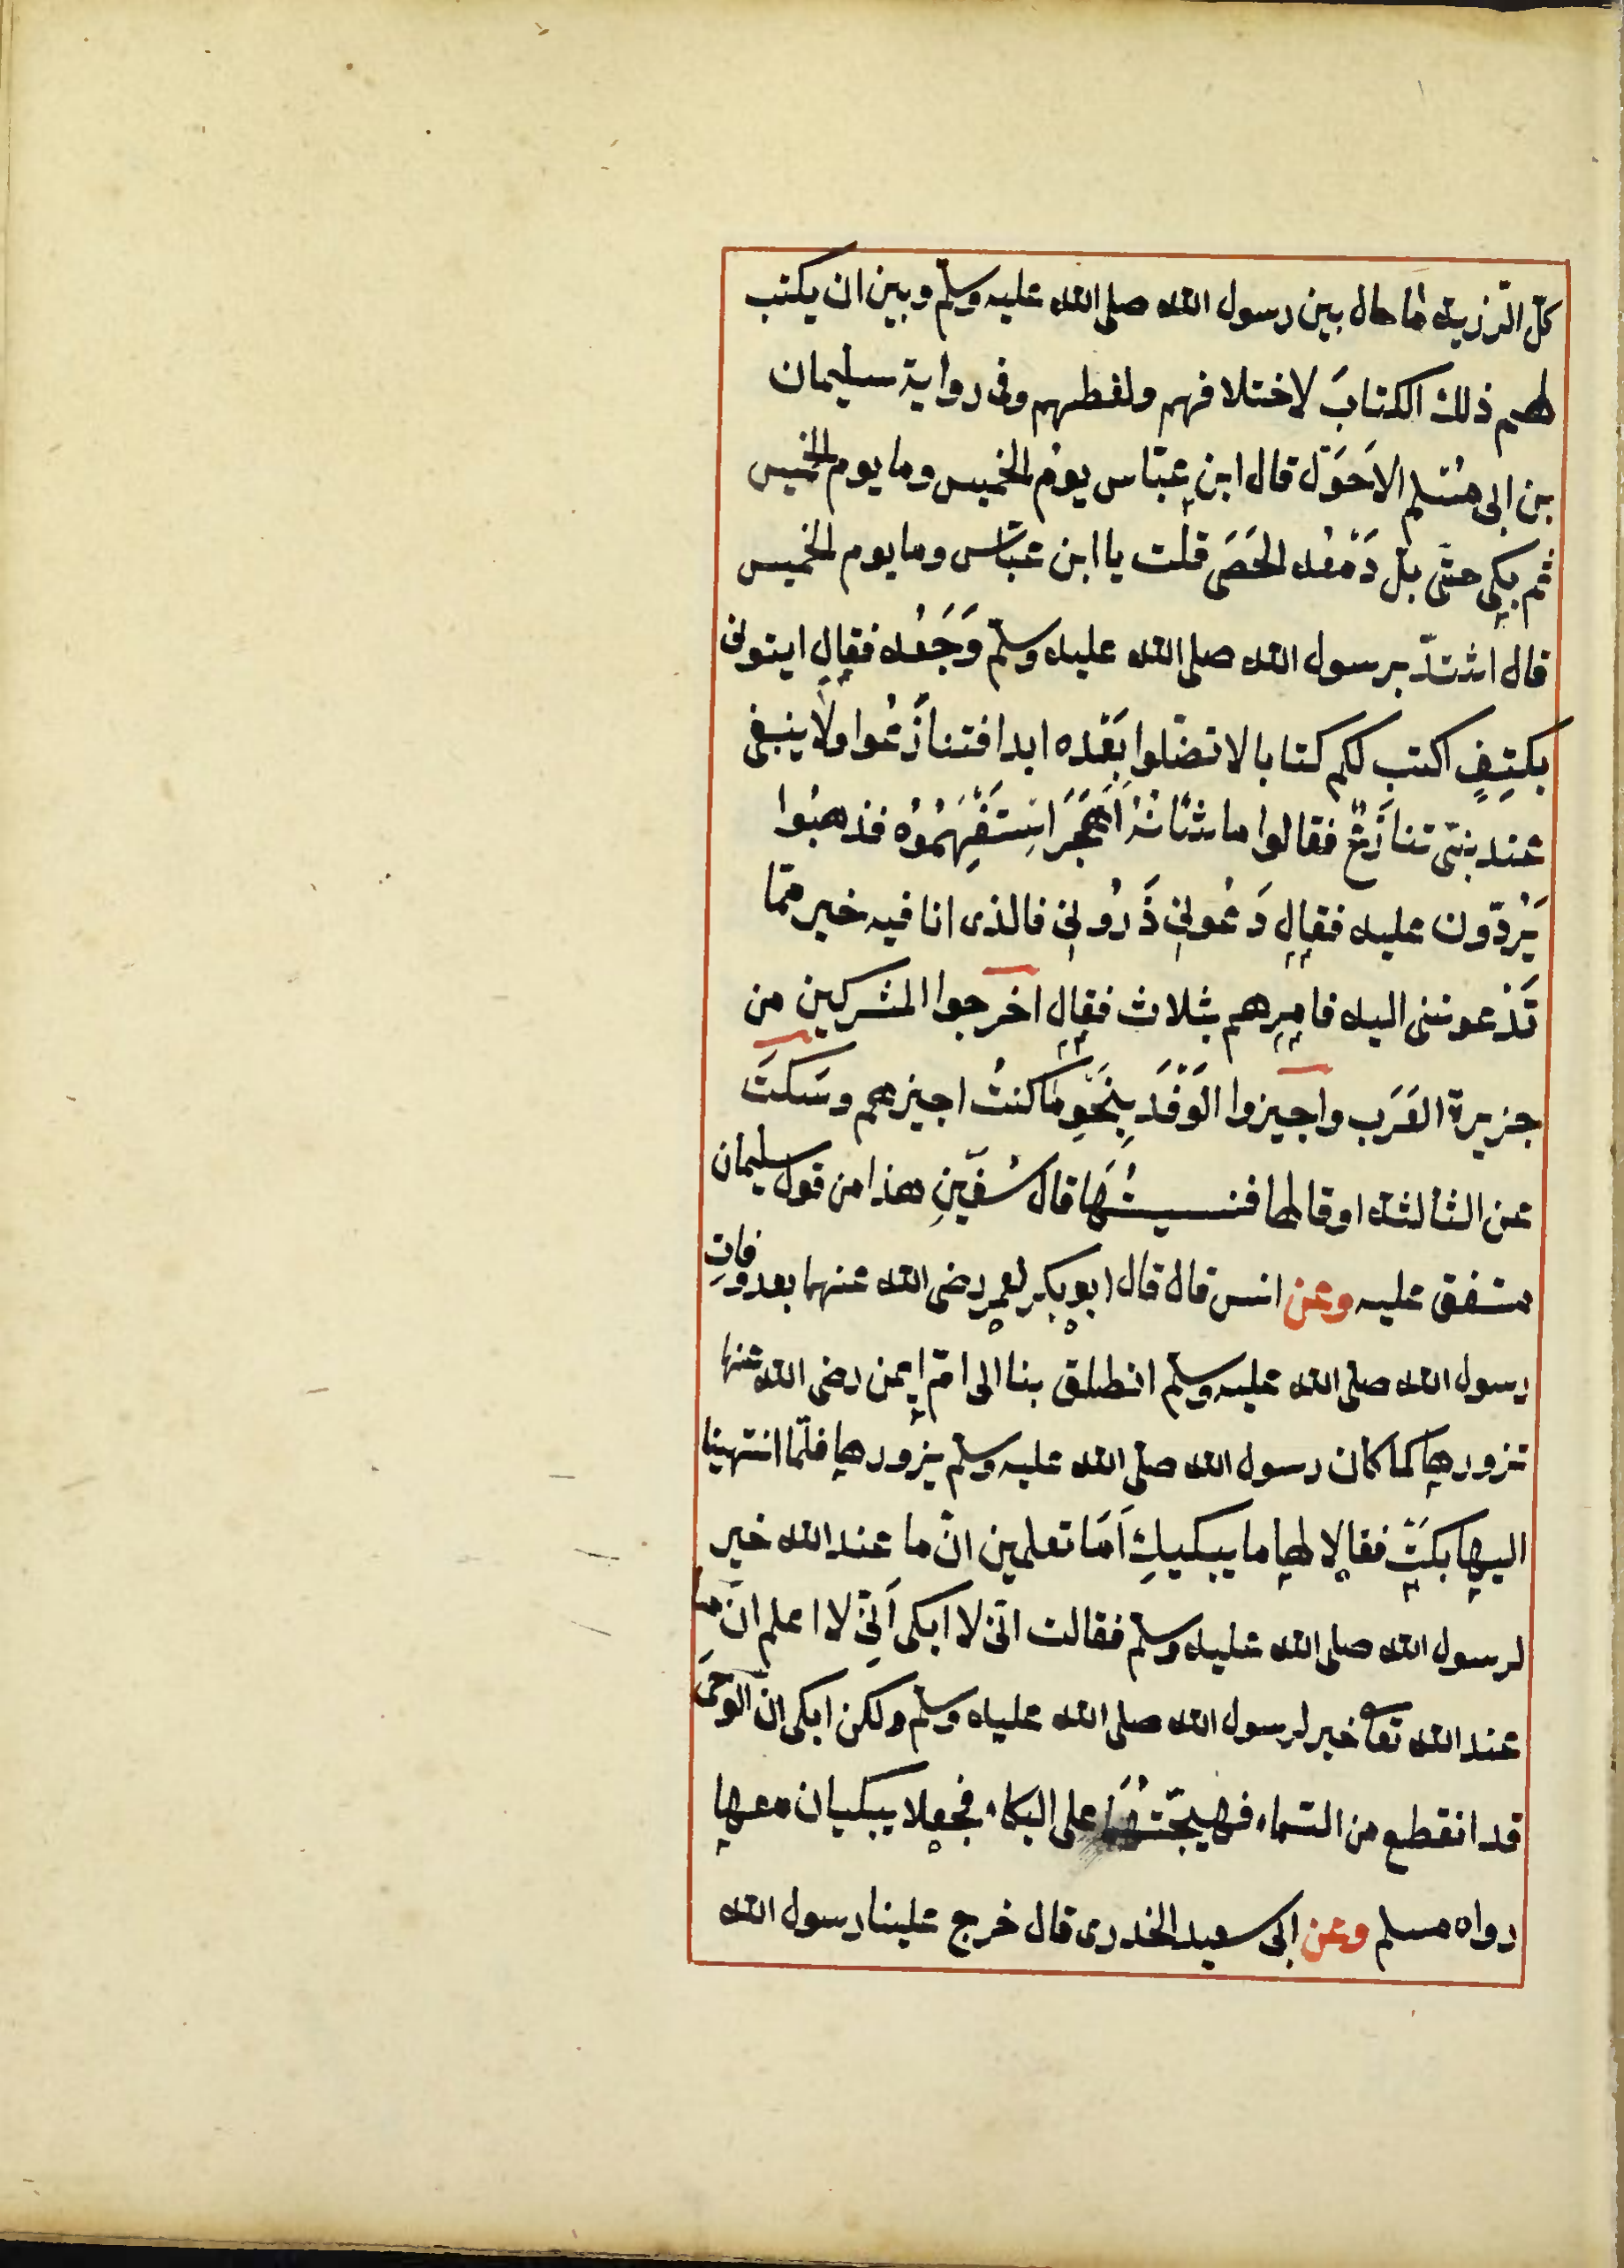 كلّ الرّزية ما حال بين رسول الله صلى الله عليه وسلم وبين ان يكتب
لهم ذلك الكتابَ لاختلافهم ولغطهم وفى رواية سليمان
بن ابى مُسْلِم الاَحْوَل قال ابن عبّاس يوْم الخميس وما يوم الخميس
ثم بكى حتّى بلّ دَمْعُه الحَصَى قلت يا ابن عبّاس وما يوم الخميس
قال اشتدّ برسول الله صلى الله عليه وسلم وَجَعُه فقال ايتونى
بكَتِفٍ اكتب لكم كتابا لا تضلّوا بَعْدَه ابدا فتنازَعُوا ولا ينبغى
عند نبىّ تنازُعٌ فقالوا ما شَأنُهُ اَهَجَرَ اسْتَفْهِمُوُه فذهبُوا
يَرُدّون عليه فقال دَعُونِى ذَرُونِى فالذى انا فيه خير ممّا
تَدْعوننى اليه فامرهم بثلاث فقال اخرجوا المشركين من
جزيرة العَرَب واجيزوا الوَفْدَ بِنَحْوِ ما كنتُ اجيزهم وسَكَتَ
عن الثالثة او قالها فنسيتُهَا قال سُفْيٰنِ هذا من قول سليمان
متفق عليه وعن انس قال قال ابو بكر لعمر رضى الله عنهما بعد وفاتِ
رسول الله صلى الله عليه وسلم انطلق بنا الى امّ ايمن رضى الله عنها
نزورها كما كان رسول الله صلى الله عليه وسلم يزورها فلمّا انتهينا
اليها بكَتْ فقالا لها ما يبكيكِ اَمَا تعلمين انّ ما عند الله خير
لرسول الله صلى الله عليه وسلم فقالت انّى لا ابكى اَنِّى لا اعلم انّ ما
عند الله تعا خير لرسول الله صلى الله عليه وسلم ولكن ابكى انّ الوحىَ
قد انقطع من السّماء فهيّجَتْهُمَا على البكاء فجعلا يبكيان معها
رواه مسلم وعن ابى سعيد الخدرى قال خرج علينا رسول الله